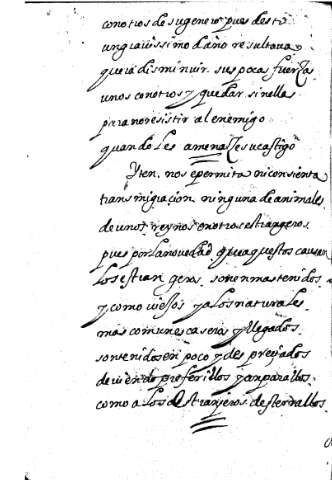 con otros de su genero pues desto
un gravissimo daño resultava
que era disminuir sus pocas fuerzas
unos con otros y quedar sin ellas
para no resistir al enemigo
quando les amenaze su castigo
Yten. nos e permita ni consienta
transmigracion ninguna de animales
de unos reynos en otros estrangeros
pues por la novedad que aquestos causan
los estran geros son en mas tenidos
y como viejos ya los naturales
mas comunes caseros y llegados
son tenidos en poco y des preçiados
deviendo preferillos y anparallos
como a los de estranjeros desterrallos